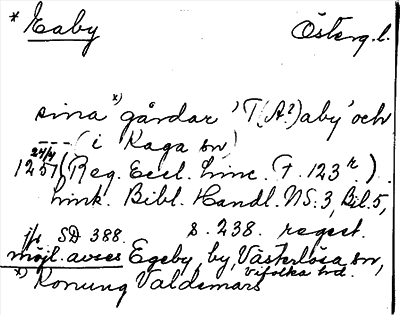 * Eaby Österg. l.
sina *) gårdar 'T(A?)aby' och
--- (i Kaga sn)
24/4
1251 (Reg. Eccl. Linc. F. 123 r.)
Link. Bibl. Handl. NS: 3, Bil. 5,
jfr SD 388. s. 238. regest.
möjl. avses Egeby, by, Västerlösa sn,
Vifolka hd.
*) Konung Valdemars